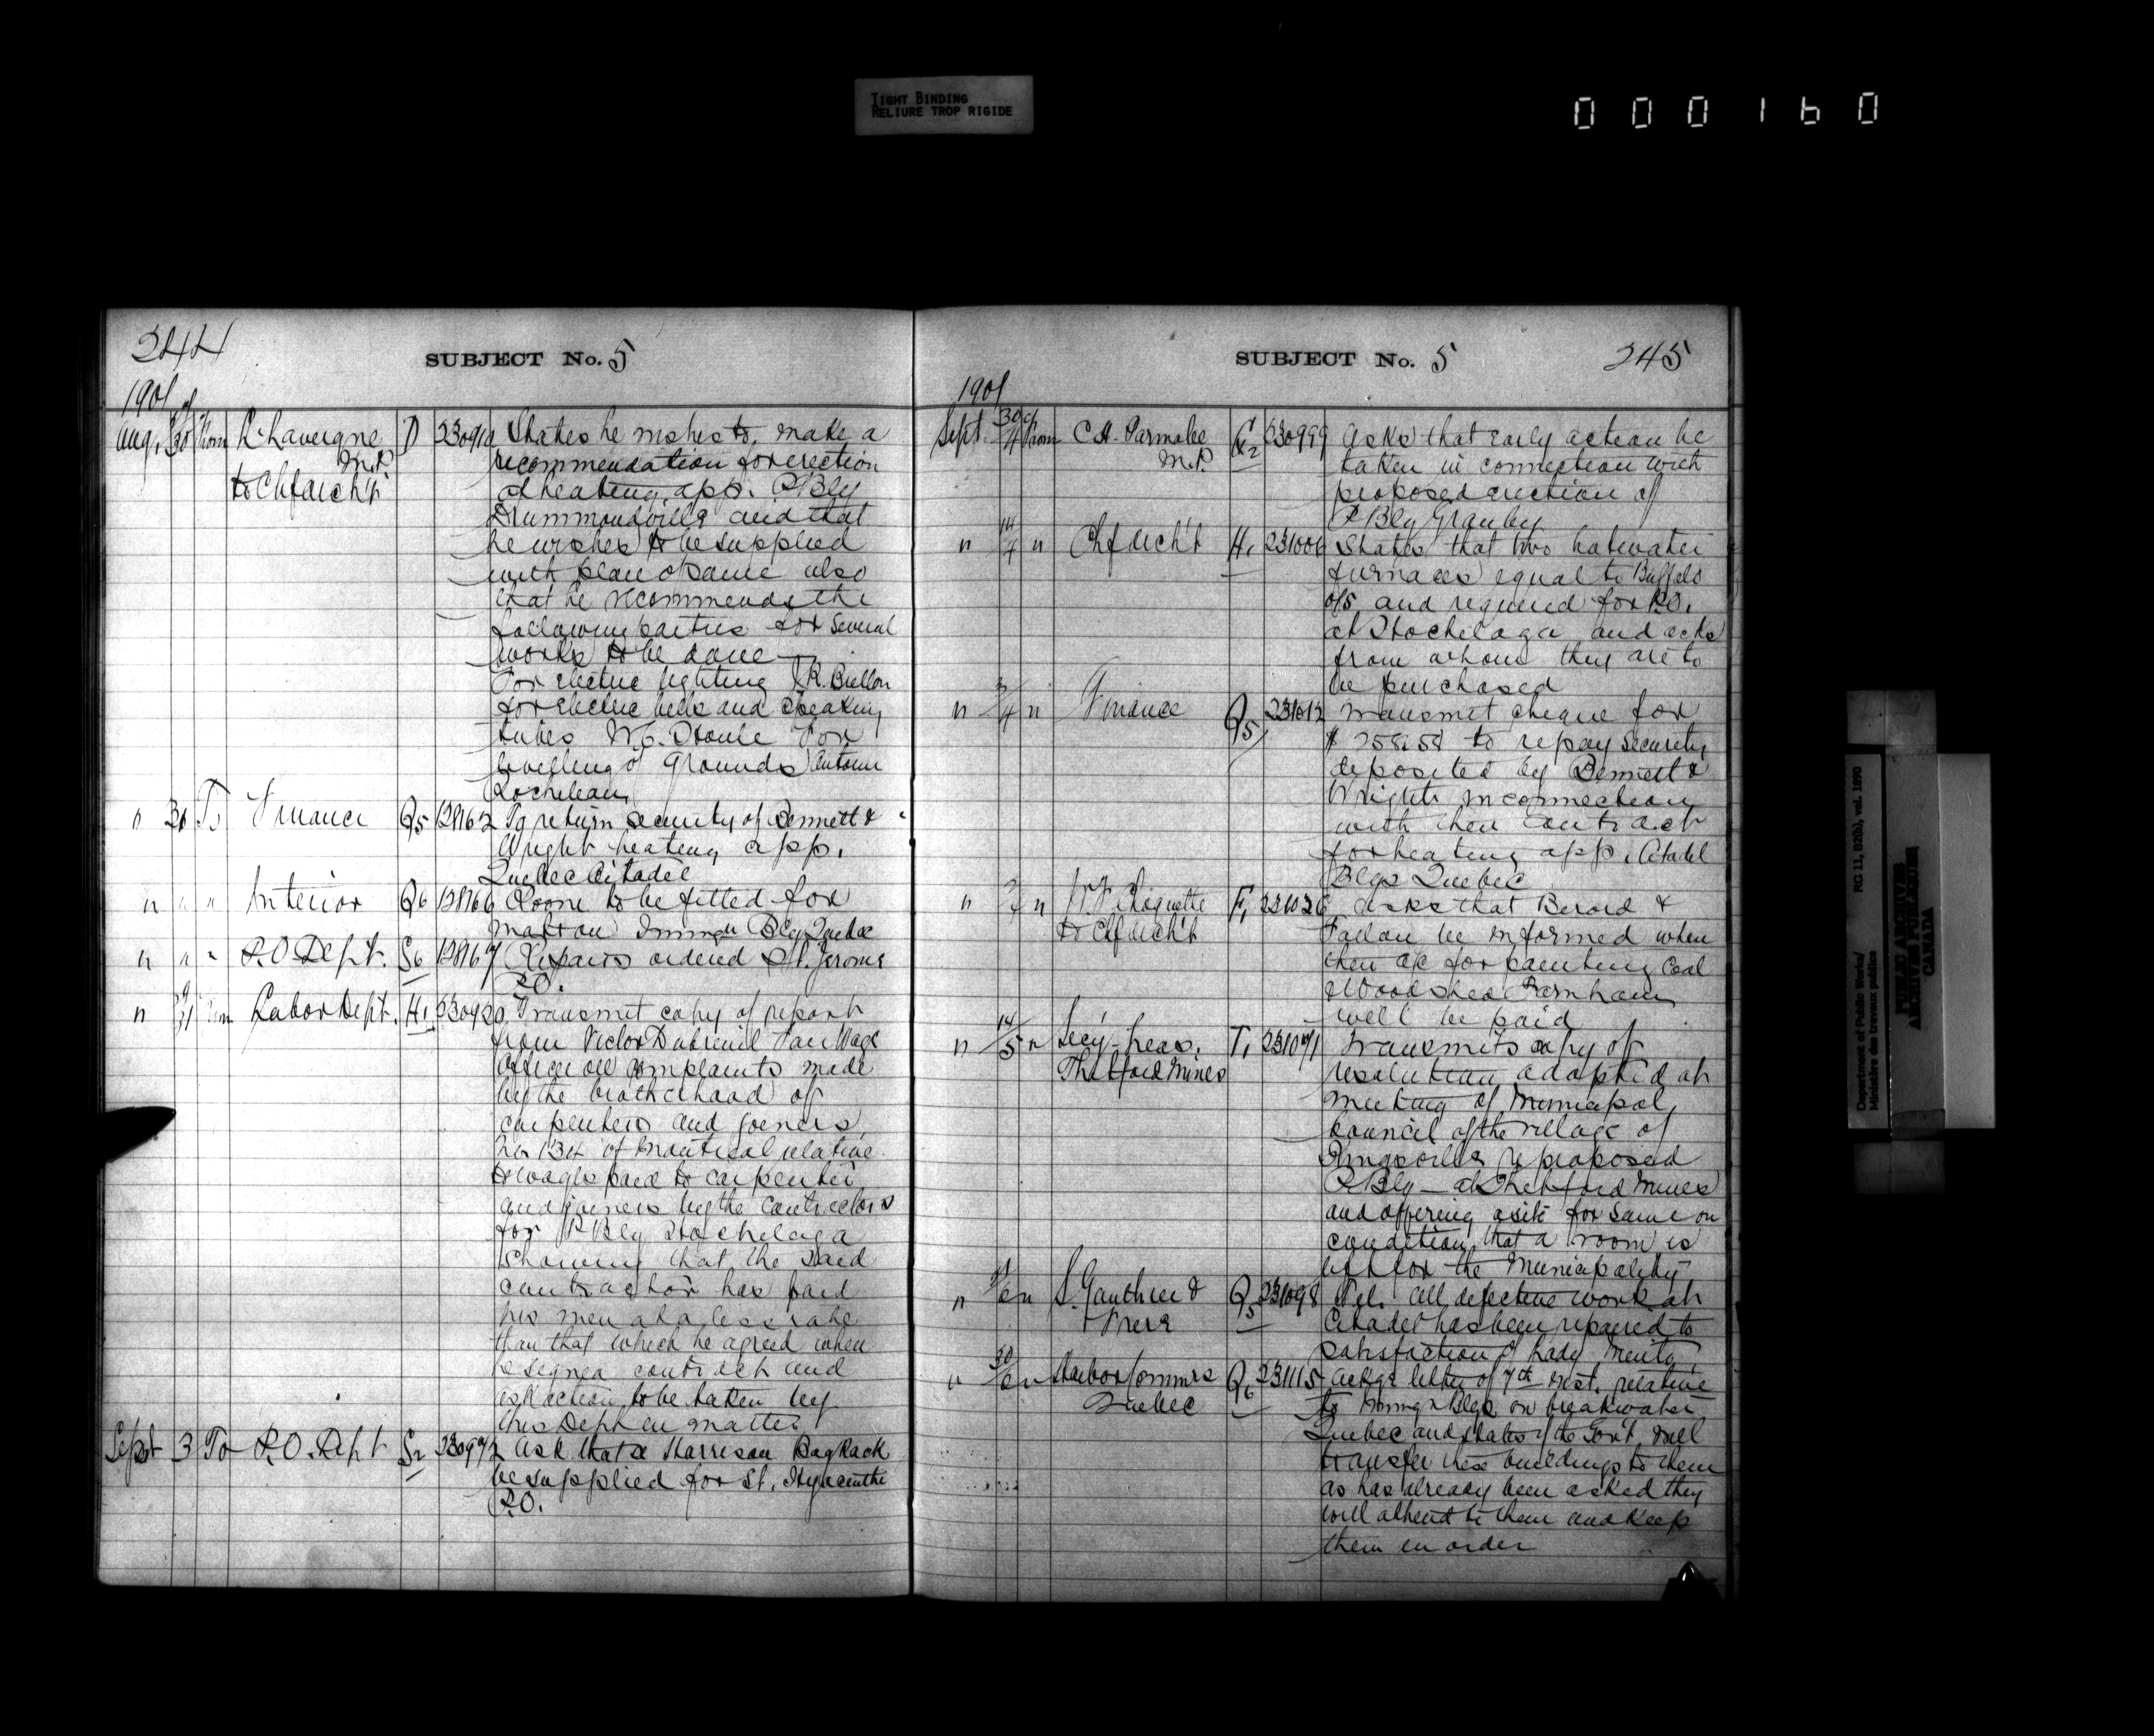 TIGHT BINDING
RELIURE TROP RIGIDE
000160
244
SUBJECT No. 5
1901
Aug. 30 From L. Lavergne D 230910 States he wishes to make a
M.P. recommendation for erection
to Chf arch't of heating app. P Blg
Drummondville and that
he wishes to be supplied
with plan of same also
that he recommends the
following parties for several
works to be done
For electric lighting R. Bullon
for electric bells and speaking
tubes For
levelling of grounds Antoine
Rocheleau
" To Finance Q5 128162 To return security of Bennett &
Wright heating app.
Quebec Citadel
" " " Interior Q6 128166 Room to be fitted for
matron Immgn Blg Quebec
" " " P.O Dept. S6 128167 Repairs ordered St. Jerome
P.O.
" 31 From Labor Dept. H1 230920 Transmit copy of report
from Victor Dubreuil Fair Wage
Officer all complaints made
by the brotherhood of
carpenters and joiners
No 134 of Montreal relative
to wages paid to carpenter
and joiners by the contractors
for P Blg Hochelaga
showing that the said
contractor has paid
his men at a less rate
than that which he agreed when
he signed contract and
ask action to be taken by
this Dept in matter
Sept 3 To P.O. Dept S2 230972 Ask that a Harrison Bag Rack
be supplied for St. Hyacinthe
P.O.
SUBJECT No. 5
245
1901
Sept. 30/4 From C.H. Parmalee G2 230999 Asks that early action be
M.P. taken in connection with
proposed erection of
P Blg Granby
" 14/4 " Chf arch't H1 231006 States that two hotwater
furnaces equal to Buffalo
and required for P.O.
at Hochelaga and asks
from whom they are to
be purchased
" 3/4 " Finance Q5 231012 Transmit cheque for
$ 258.58 to repay security
deposited by Bennett &
Wright in connection
with their contract
for heating app. Citadel
Blgs Quebec
" " Choquette F1 231026 Asks that Berard &
to Chf arch't be informed when
their a/c for painting Coal
& Wood shed Farnham
will be paid
" 14/5 " Secy-treas. T1 231071 Transmits copy of
Thetford Mines resolution adopted at
meeting of Municipal
Council of the village of
Kingsville re proposed
P Blg - at Thetford Mines
and offering a site for same on
condition that a room is
left for the Municipality
" " S. Gauthier & Q5 231098 Tel. all defective work at
Frere Citadel has been repaired to
satisfaction of Lady Minto
" 30/6 " Harbor Commrs Q6 231115 Ackgs letter of 7th inst. relative
Quebec to Immgn Blgs on breakwater
Quebec and states if the Gov't will
transfer these buildings to them
as has already been asked they
will attend to them and keep
them in order
Department of Public Works/
Ministère des travaux publics
RG 11, B2(b), vol. 1890
PUBLIC ARCHIVES
ARCHIVES PUBLIQUES
CANADA